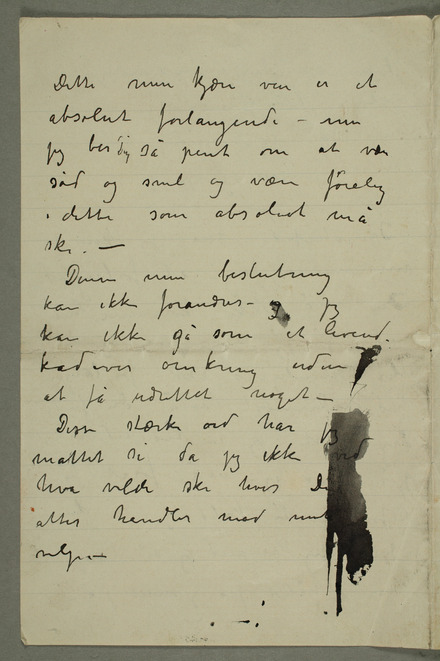 Dette min kjære ven er et
absolut forlangende – men
jeg ber dig så pent om at være
sød og snil og være føielig
i dette som absolut må
ske. —
Denne min beslutning
kan ikke forandres – Jeg
kan ikke gå som et levende
kadaver omkring uden
at få udrettet noget –
Disse stærke ord har jeg
måttet si da jeg ikke ved
hva vilde ske hvis Du
atter handler mod min
vilje —